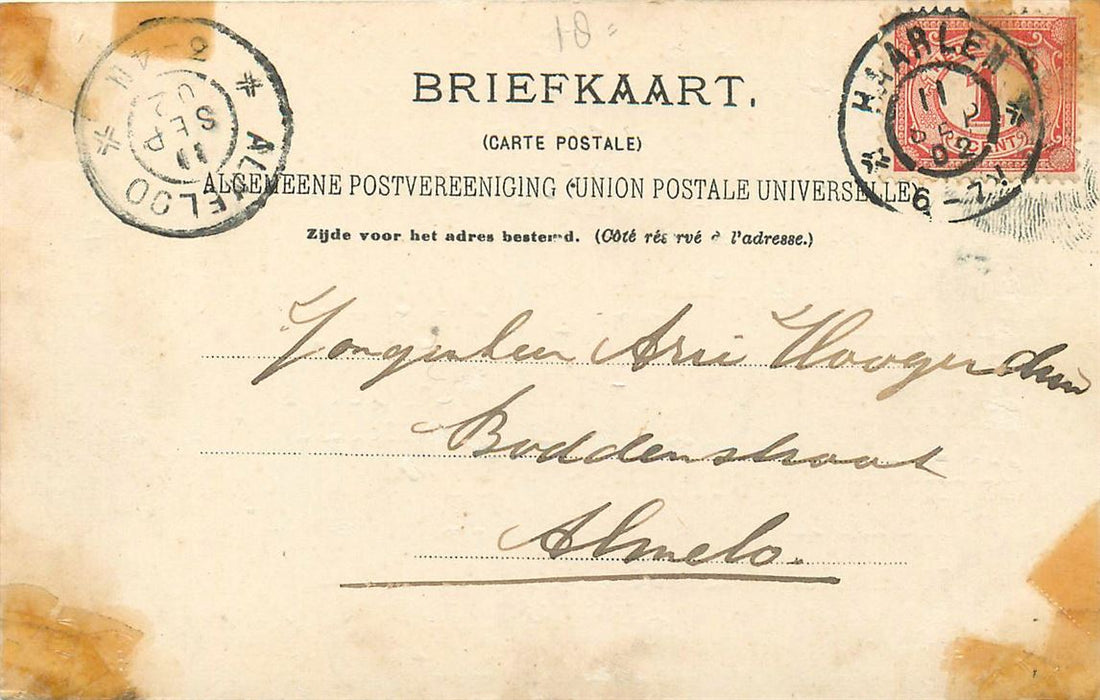 10=
BRIEFKAART.
(CARTE POSTALE)
ALGEMEENE POSTVEREENIGING (UNION POSTALE UNIVERSELLE)
Zijde voor het adres bestemd. (Côté réservé à l'adresse.)
HAARLEM
11 SEP 02
6-7N
1
CENT
ALMELOO
11 SEP 02
Arri Hoogendam
Boddenstraat
Almelo.